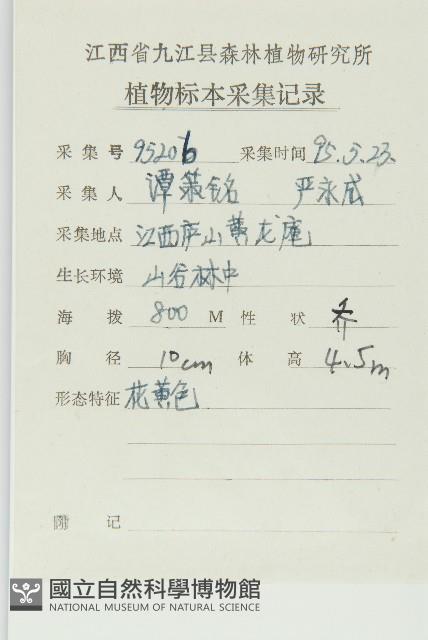 江西省九江县森林植物研究所
植物标本采集记录
采集号 95206 采集时间 95.5.23.
采集人 谭策铭 严永成
采集地点 江西庐山黄龙庵
生长环境 山谷林中
海拨 800 M 性状 乔
胸径 10cm 体高 4.5m
形态特征 花黄色
附记
國立自然科學博物館
NATIONAL MUSEUM OF NATURAL SCIENCE